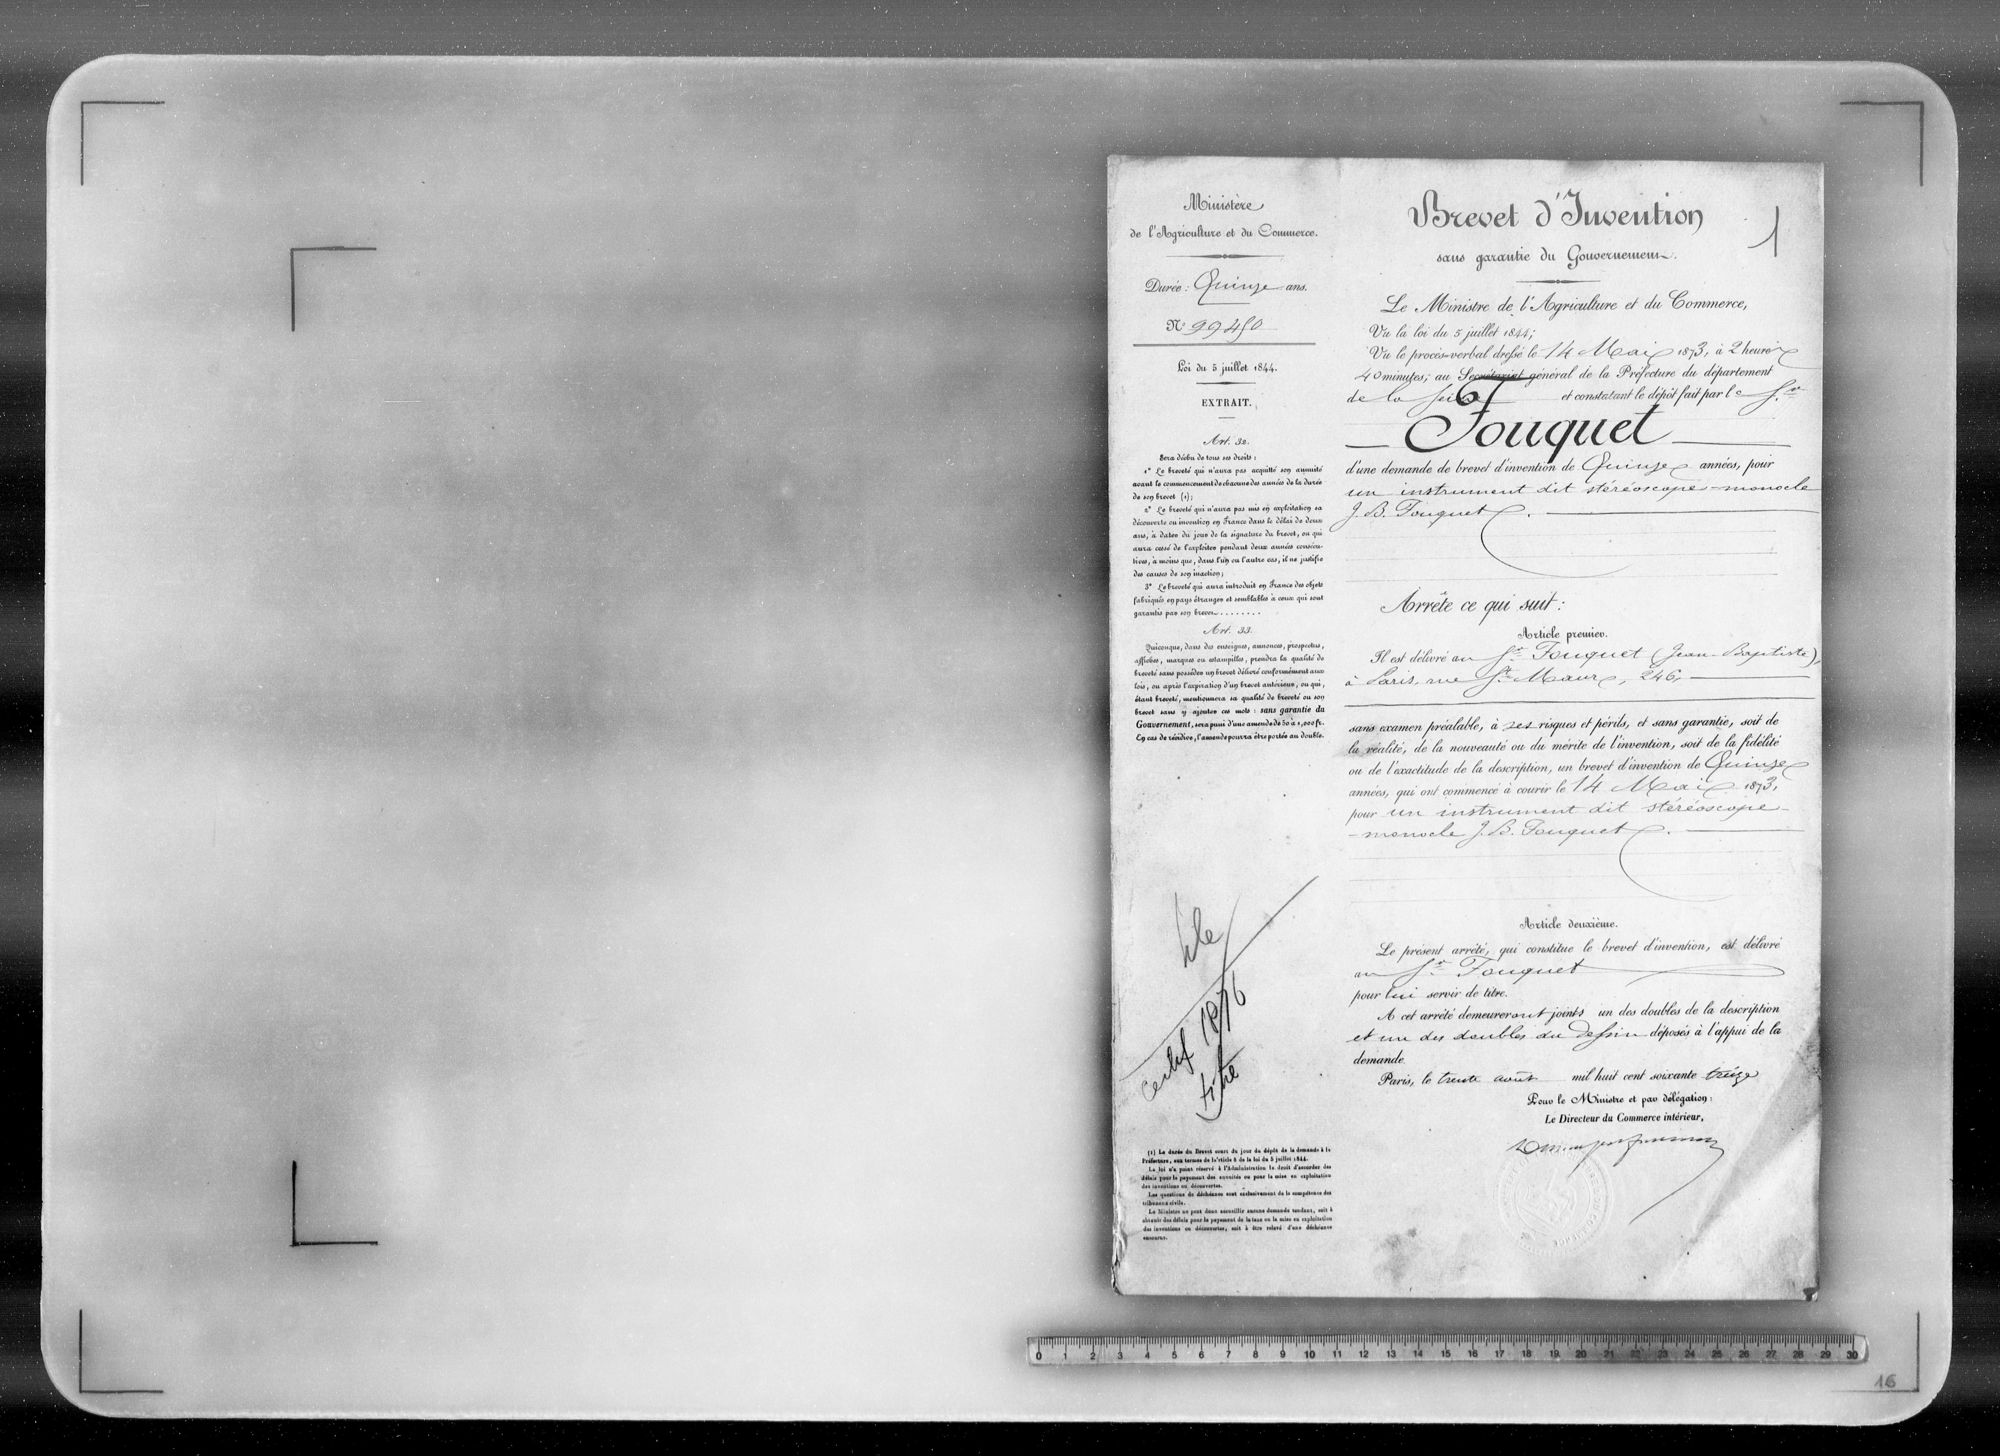 Ministère
de l'Agriculture et du Commerce.
Durée : Quinze ans.
N° 99450
Loi du 5 juillet 1844.
EXTRAIT.
Art. 32.
Sera déchu de tous ses droits :
1° Le breveté qui n'aura pas acquitté son annuité
avant le commencement de chacune des années de la durée
de son brevet (1);
2° Le breveté qui n'aura pas mis en exploitation sa
découverte ou invention en France dans le délai de deux
ans, à dater du jour de la signature du brevet, ou qui
aura cessé de l'exploiter pendant deux années consécu-
tives, à moins que, dans l'un ou l'autre cas, il ne justifie
des causes de son inaction;
3° Le breveté qui aura introduit en France des objets
fabriqués en pays étranger et semblables à ceux qui sont
garantis par son brevet........
Art. 33.
Quiconque, dans des enseignes, annonces, prospectus,
affiches, marques ou estampilles, prendra la qualité de
breveté sans posséder un brevet délivré conformément aux
lois, ou après l'expiration d'un brevet antérieur, ou qui,
étant breveté, mentionnera sa qualité de breveté ou son
brevet sans y ajouter ces mots : sans garantie du
Gouvernement, sera puni d'une amende de 50 à 1,000 fr.
En cas de récidive, l'amende pourra être portée au double.
certif 1876
titre
(1) La durée du Brevet court du jour du dépôt de la demande à la
Préfecture, aux termes de l'article 8 de la loi du 5 juillet 1844.
La loi n'a point réservé à l'Administration le droit d'accorder des
délais pour le payement des annuités ou pour la mise en exploitation
des inventions ou découvertes.
Les questions de déchéance sont exclusivement de la compétence des
tribunaux civils.
Le Ministre ne peut donc accueillir aucune demande tendant, soit à
obtenir des délais pour le payement de la taxe ou la mise en exploitation
des inventions ou découvertes, soit à être relevé d'une déchéance
encourue.
Brevet d'Invention
1
sans garantie du Gouvernement.
Le Ministre de l'Agriculture et du Commerce,
Vu la loi du 5 juillet 1844;
Vu le procès-verbal dressé le 14 Mai 1873, à 2 heures
40 minutes, au Secrétariat général de la Préfecture du département
de la Seine et constatant le dépôt fait par le Sr
Fouquet
d'une demande de brevet d'invention de Quinze années, pour
un instrument dit stéréoscope-monocle
J. B. Fouquet.
Arrête ce qui suit :
Article premier.
Il est délivré au Sr Fouquet (Jean-Baptiste),
à Paris, rue St Maur, 246,
sans examen préalable, à ses risques et périls, et sans garantie, soit de
la réalité, de la nouveauté ou du mérite de l'invention, soit de la fidélité
ou de l'exactitude de la description, un brevet d'invention de Quinze
années, qui ont commencé à courir le 14 Mai 1873,
pour un instrument dit stéréoscope-
-monocle J. B. Fouquet.
Article deuxième.
Le présent arrêté, qui constitue le brevet d'invention, est délivré
au Sr Fouquet
pour lui servir de titre.
A cet arrêté demeureront joints un des doubles de la description
et un des doubles du dessin déposés à l'appui de la
demande.
Paris, le trente août mil huit cent soixante treize
Pour le Ministre et par délégation :
Le Directeur du Commerce intérieur,
0 1 2 3 4 5 6 7 8 9 10 11 12 13 14 15 16 17 18 19 20 21 22 23 24 25 26 27 28 29 30
16